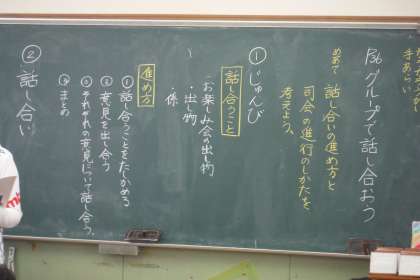 手あらい
P36 グループで話し合おう
めあて 話し合いの進め方と
司会の進行のしかたを
考えよう、
①じゅんび
話し合うこと
・お楽しみ会の出し物
・出し物
・係
進め方
①話し合うことをたしかめる
②意見を出し合う
③それぞれの意見について話し合う。
④まとめ
②話し合い